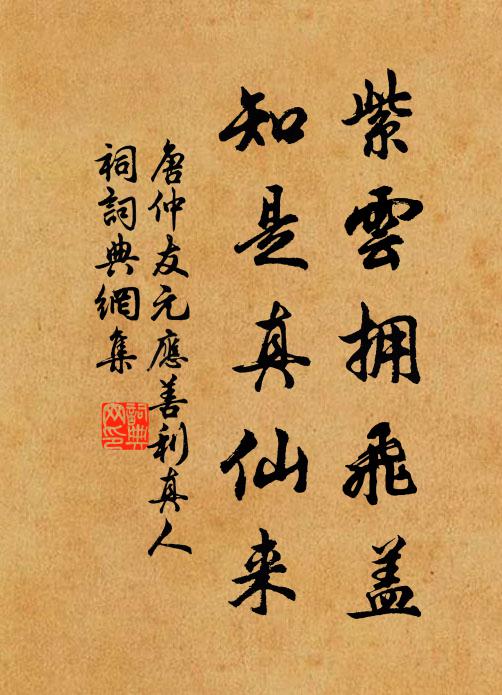 紫雲拥飛盖
知是真仙来
唐仲友元應善利真人
祠詞典網集
詞典网印